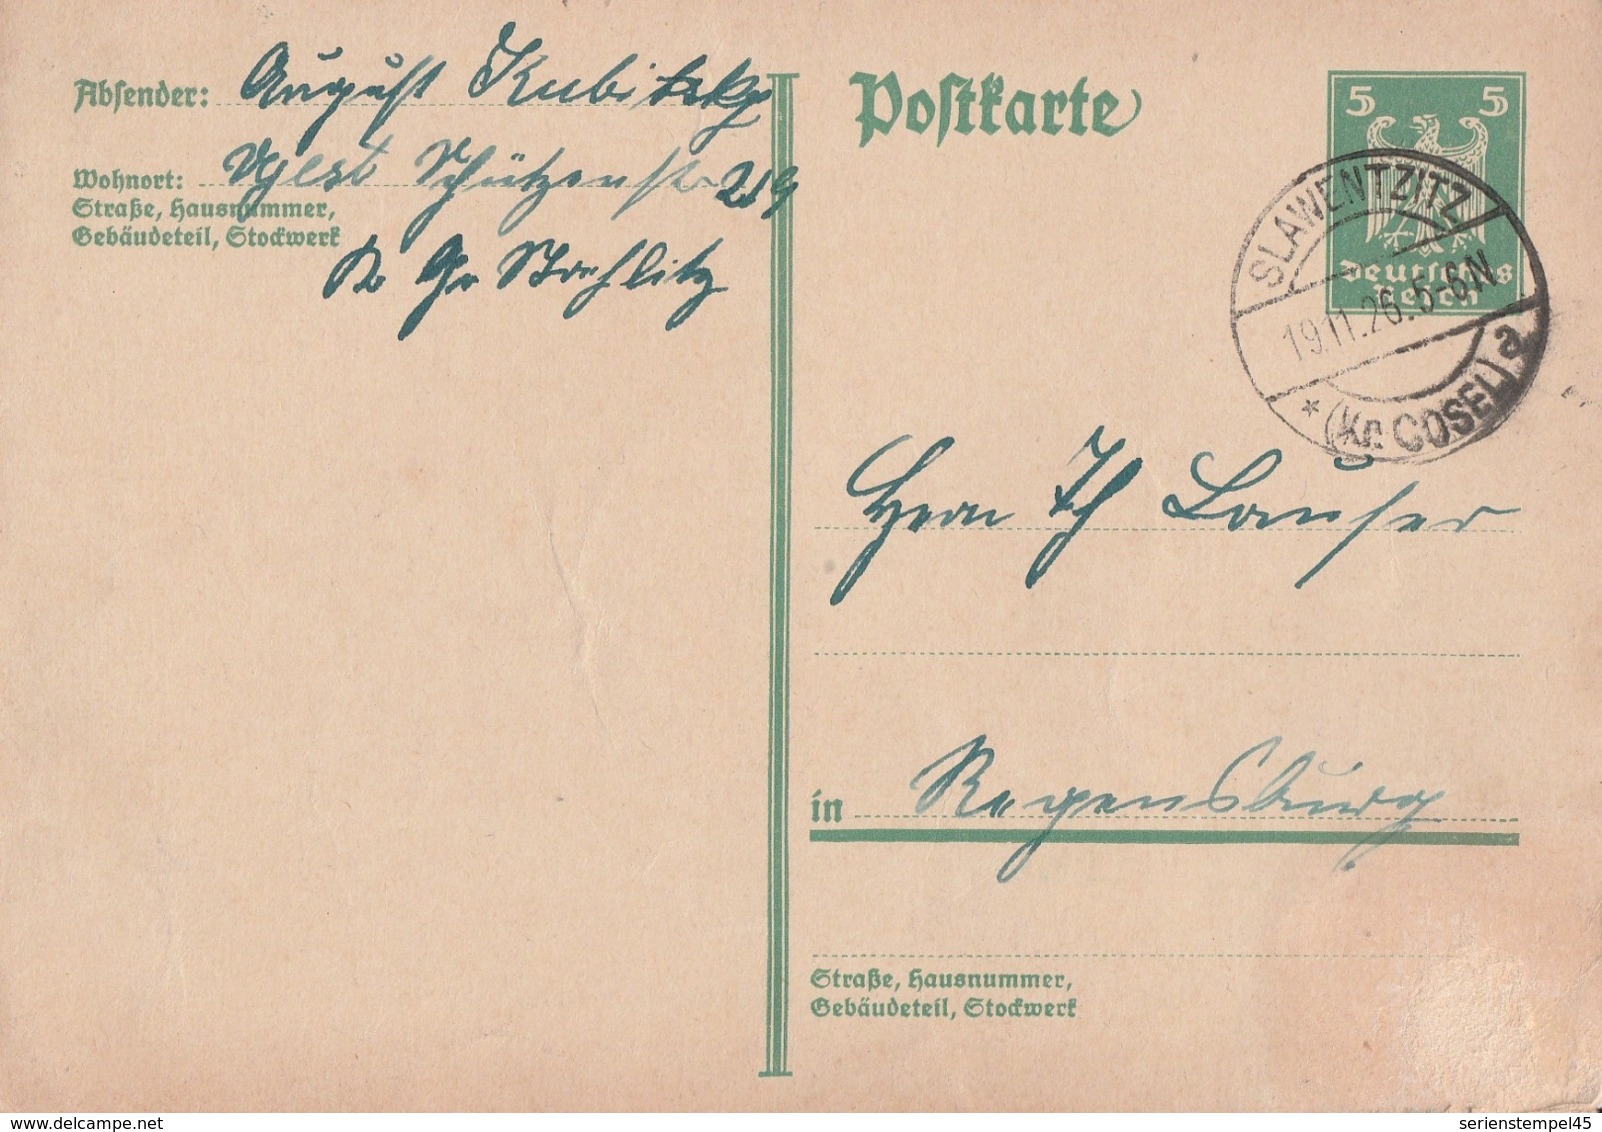 Absender: August Kubitzky
Wohnort: Ujest Schützenstr 219
Straße, Hausnummer,
Gebäudeteil, Stockwerk
Kr Gr Strehlitz
Postkarte
5 5
Deutsches
Reich
SLAWENTZITZ
19.11.26.5-6N
* (Kr. COSEL) a
Herrn Lauser
in Regensburg
Straße, Hausnummer,
Gebäudeteil, Stockwerk
serienstempel45